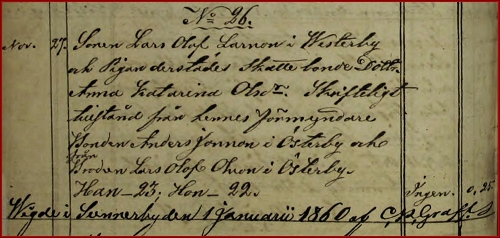 No 26.
Nov. 27. Sonen Lars Olof Larsson i Westerby
och Pigan derstädes Skattebonde Dottn
Anna Katarina Olsdr. Skrifteligt
tillstånd från hennes Förmyndare
Bonden Anders Jonsson i Österby och
från
Brodren Lars Olof Olsson i Österby.
Han _ 23, Hon _ 22. Ingen. 0,25
Wigde i Sunnerby den 1 Januarii 1860 af C.P. Graff.